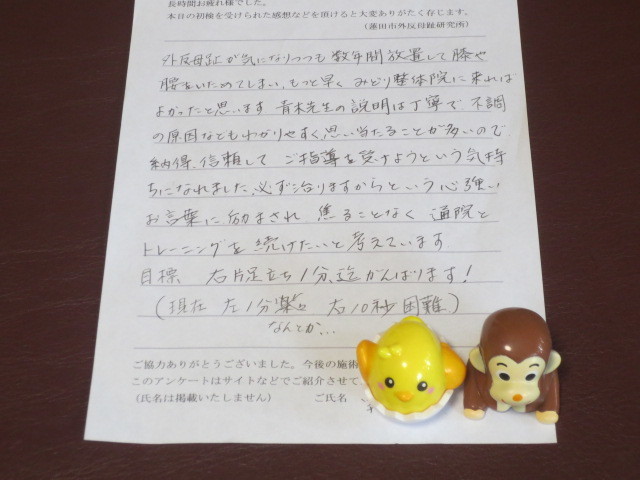 長時間お疲れ様でした。
本日の初検を受けられた感想などを頂けると大変ありがたく存じます。
(蓮田市外反母趾研究所)
外反母趾が気になりつつも数年間放置して膝や
腰をいためてしまい、もっと早くみどり整体院に来れば
よかったと思います 青木先生の説明は丁寧で、不調
の原因などもわかりやすく、思い当たることが多いので
納得、信頼して ご指導を受けようという気持
ちになれました。必ず治りますからという心強い
お言葉に励まされ 焦ることなく 通院と
トレーニングを続けたいと考えています
目標 右片足立ち1分迄がんばります!
(現在 左1分楽 右10秒困難)
なんとか…
ご協力ありがとうございました。今後の施術
このアンケートはサイトなどでご紹介させて
(氏名は掲載いたしません) ご氏名